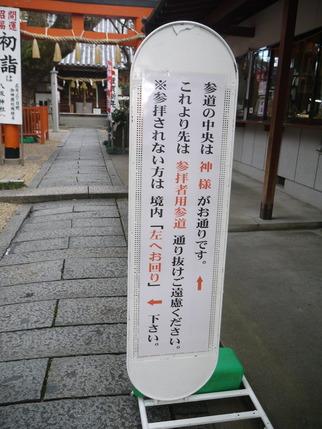 参道の中央は 神様 がお通りです。 →
これより先は 参拝者用参道 通り抜けご遠慮ください。
※参拝されない方は 境内「左へお回り」← 下さい。
開運
招福
初詣は
八坂神社へ